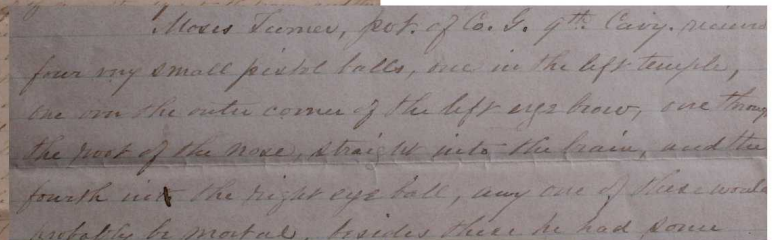 Moses Turner, pvt. of Co. G. 9th Cavy.
four very small pistol balls, one in the left temple,
one over the outer corner of the left eye brow, one through
the root of the nose, straight into the brain, and the
fourth into the right eye ball, any one of these would
probably be mortal, besides these he had some